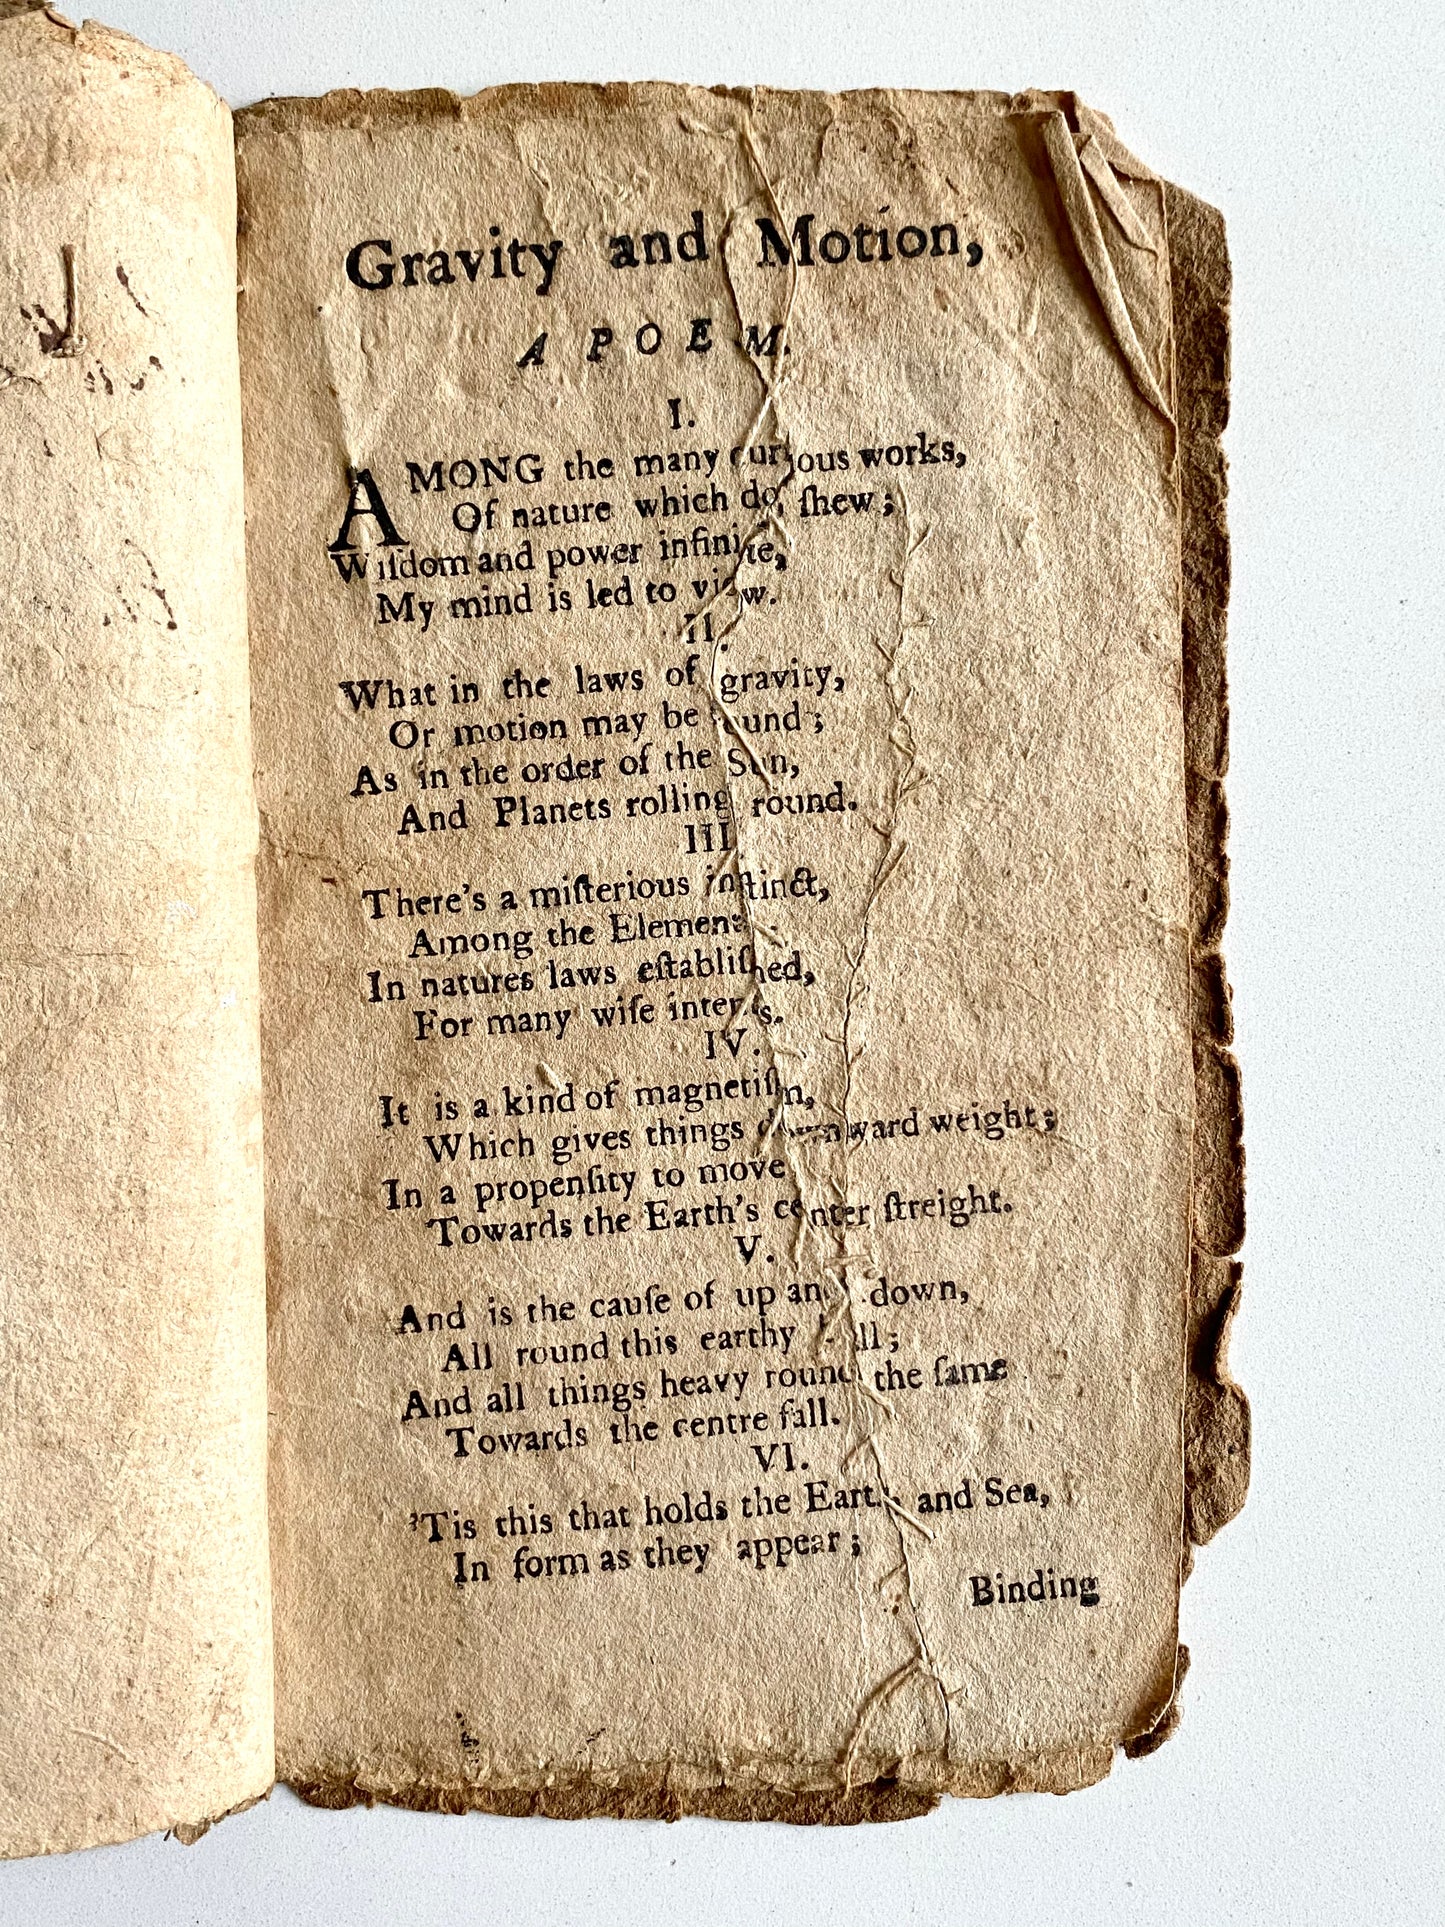 Gravity and Motion,
A POEM.
I.
AMONG the many curious works,
Of nature which do ſhew;
Wiſdom and power infinite,
My mind is led to view.
II.
What in the laws of gravity,
Or motion may be found;
As in the order of the Sun,
And Planets rolling round.
III.
There's a miſterious inſtinct,
Among the Element
In natures laws eſtabliſhed,
For many wiſe intents.
IV.
It is a kind of magnetiſm,
Which gives things downward weight;
In a propenſity to move
Towards the Earth's center ſtreight.
V.
And is the cauſe of up and down,
All round this earthy ball;
And all things heavy round the ſame
Towards the centre fall.
VI.
'Tis this that holds the Earth and Sea,
In form as they appear;
Binding